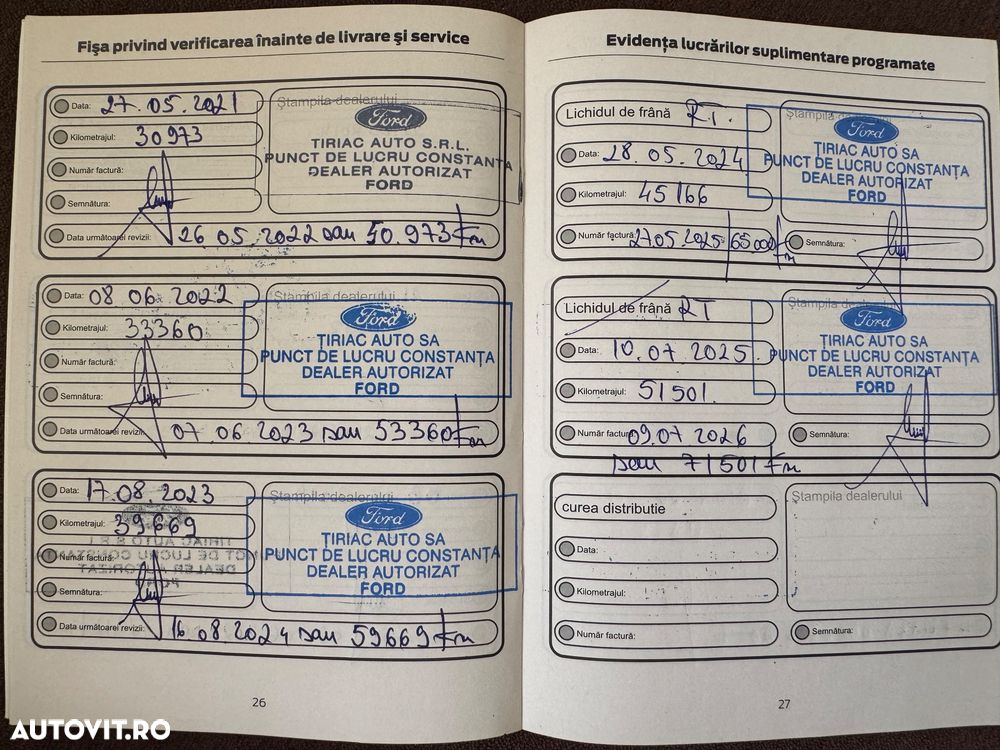 Fișa privind verificarea înainte de livrare și service
Data: 27.05.2021
Kilometrajul: 30973
Număr factură:
Semnătura:
Data următoarei revizii: 26.05.2022 sau 50.973 km
Ștampila dealerului
Ford
TIRIAC AUTO S.R.L.
PUNCT DE LUCRU CONSTANȚA
DEALER AUTORIZAT
FORD
Data: 08 06 2022
Kilometrajul: 33360
Număr factură:
Semnătura:
Data următoarei revizii: 07.06 2023 sau 53360 km
Ștampila dealerului
Ford
ȚIRIAC AUTO SA
PUNCT DE LUCRU CONSTANȚA
DEALER AUTORIZAT
FORD
Data: 17.08.2023
Kilometrajul: 39669
Număr factură:
Semnătura:
Data următoarei revizii: 16 08 2024 sau 59669 km
Ștampila dealerului
Ford
ȚIRIAC AUTO SA
PUNCT DE LUCRU CONSTANȚA
DEALER AUTORIZAT
FORD
26
Evidența lucrărilor suplimentare programate
Lichidul de frână RT.
Data: 28.05.2024
Kilometrajul: 45166
Număr factură: 27.05.2025/65000 km
Ștampila dealerului
Ford
ȚIRIAC AUTO SA
PUNCT DE LUCRU CONSTANȚA
DEALER AUTORIZAT
FORD
Semnătura:
Lichidul de frână RT
Data: 10.07.2025
Kilometrajul: 51501.
Număr factură: 09.07.2026
sau 71501 km
Ștampila dealerului
Ford
ȚIRIAC AUTO SA
PUNCT DE LUCRU CONSTANȚA
DEALER AUTORIZAT
FORD
Semnătura:
curea distributie
Data:
Kilometrajul:
Număr factură:
Ștampila dealerului
Semnătura:
27
AUTOVIT.RO